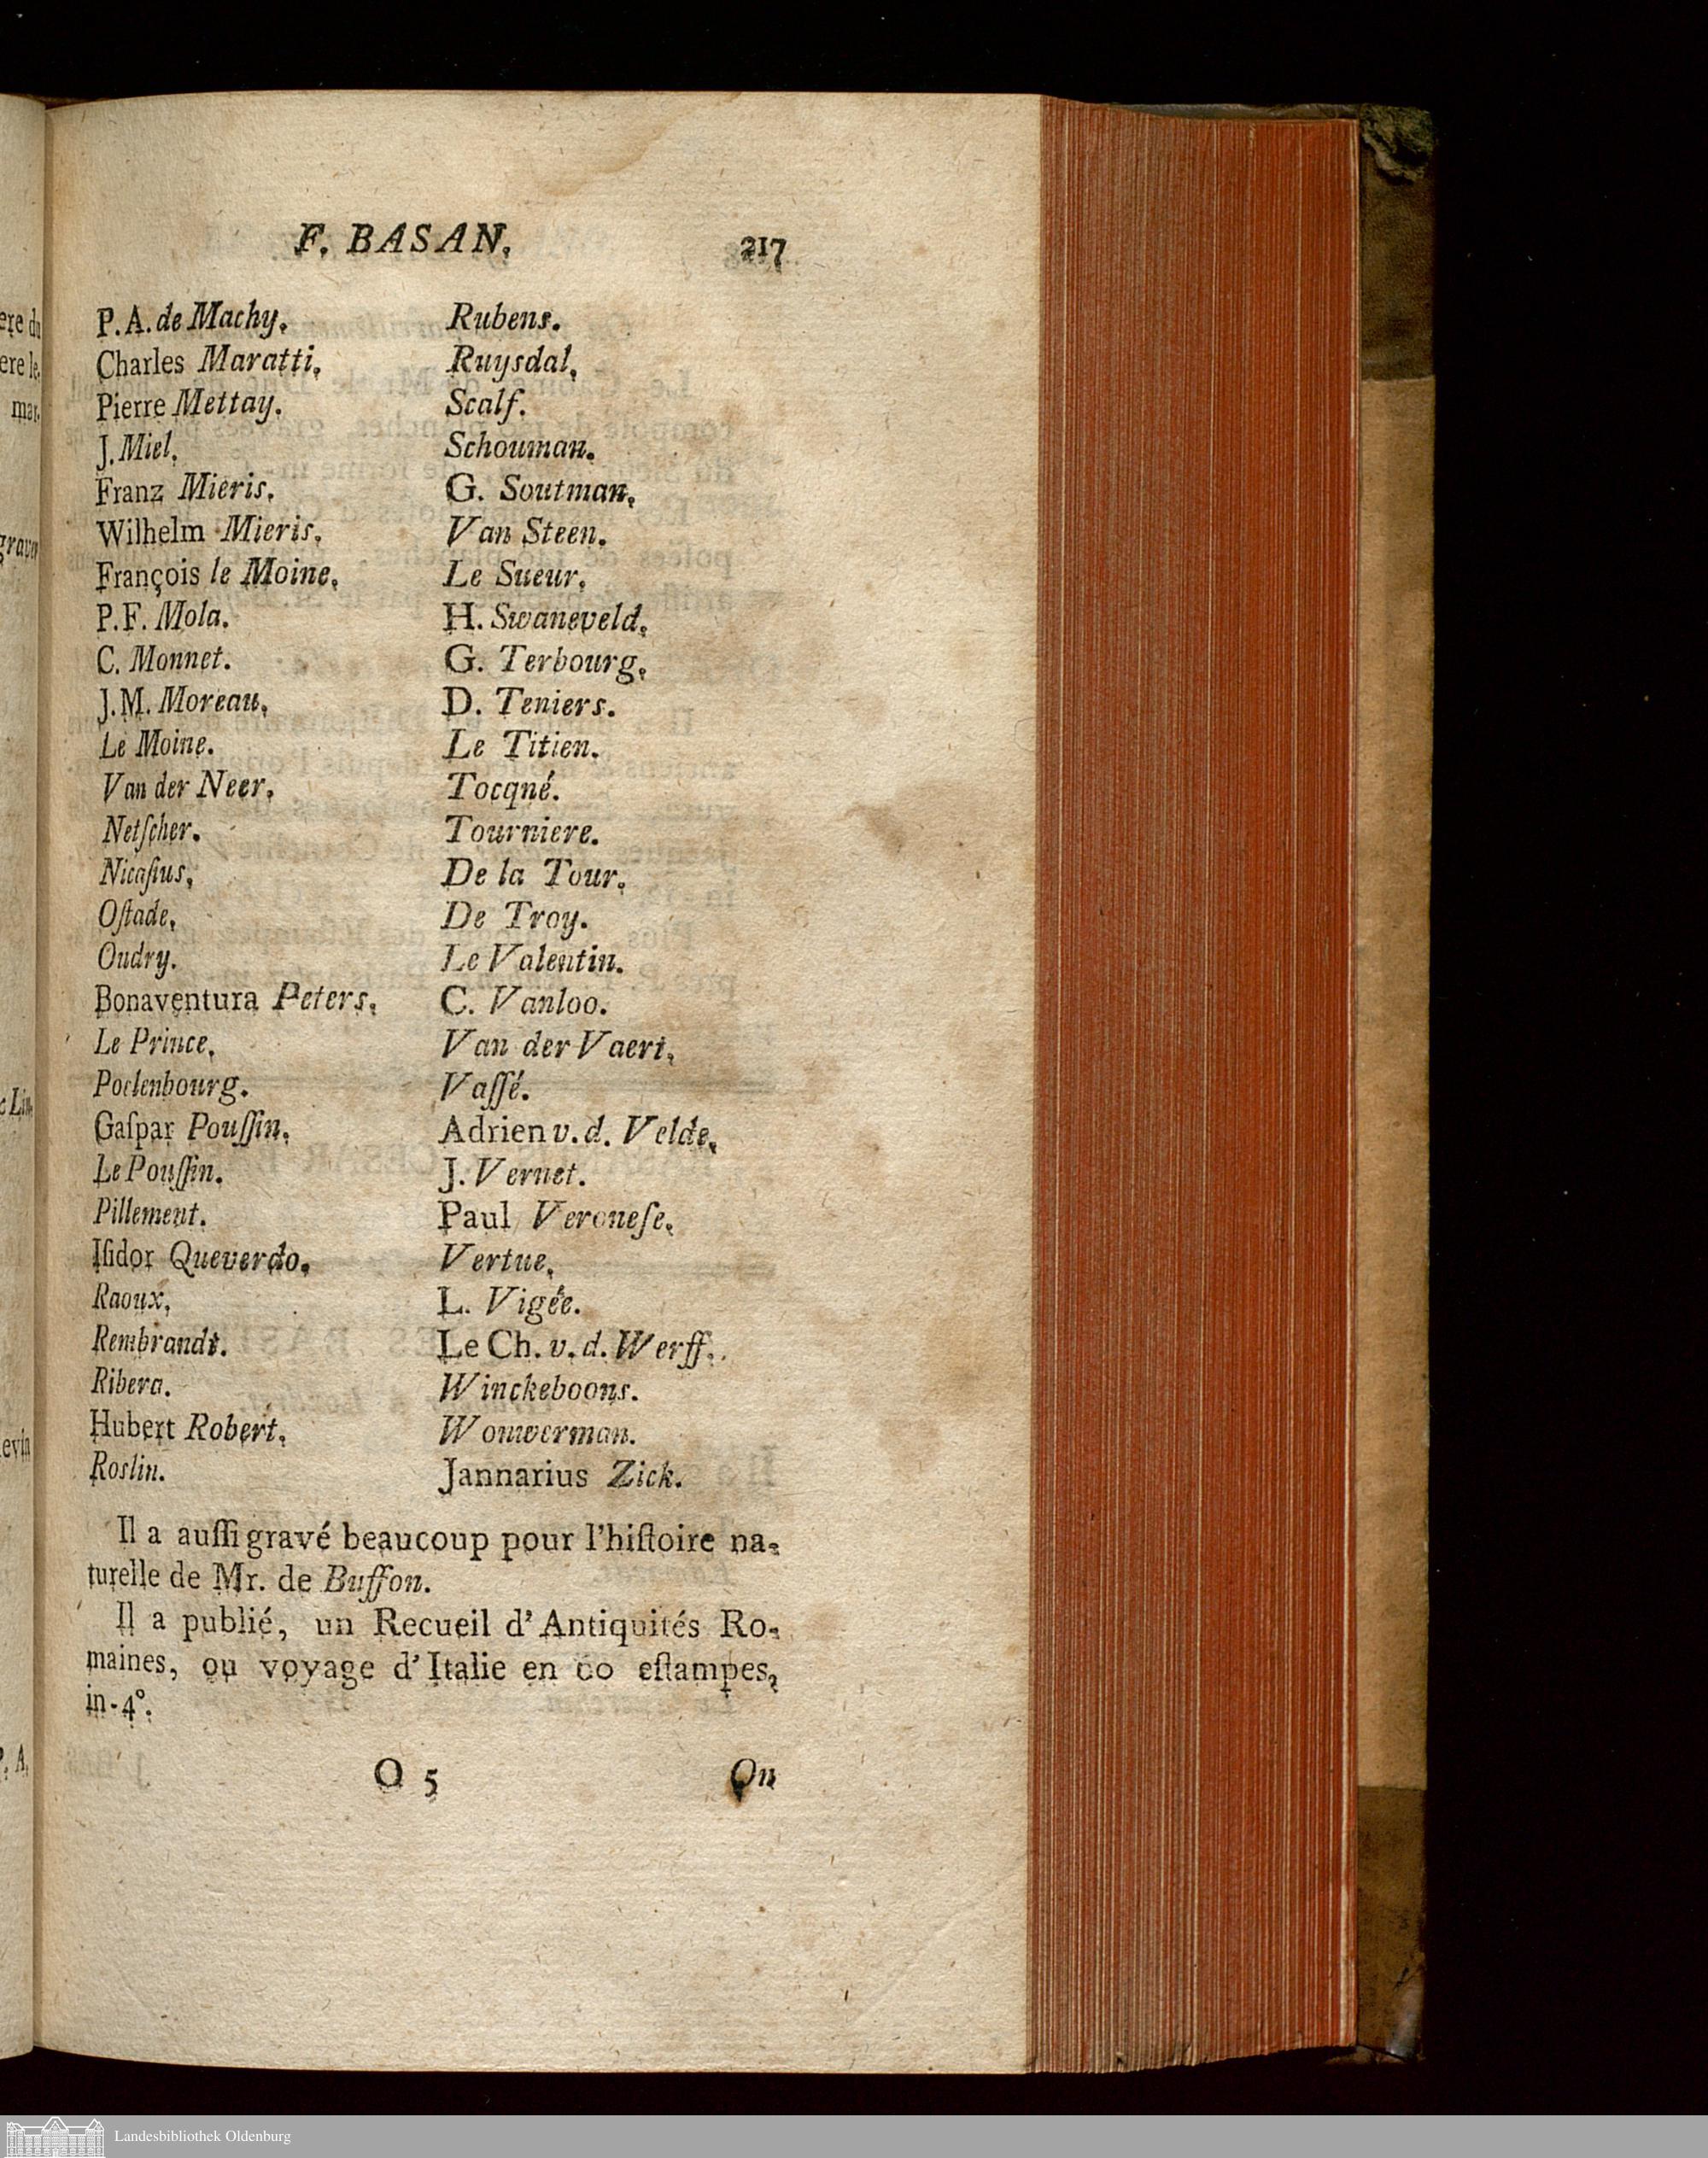 F. BASAN.
217
P. A. de Machy.
Charles Maratti.
Pierre Mettay.
J. Miel.
Franz Mieris.
Wilhelm Mieris.
François le Moine.
P. F. Mola.
C. Monnet.
J. M. Moreau.
Le Moine.
Van der Neer.
Netſcher.
Nicaſius.
Oſtade.
Oudry.
Bonaventura Peters.
Le Prince.
Poelenbourg.
Gaſpar Pouſſin.
Le Pouſſin.
Pillement.
Iſidor Queverdo.
Raoux.
Rembrandt.
Ribera.
Hubert Robert.
Roslin.
Rubens.
Ruysdal.
Scalf.
Schouman.
G. Soutman.
Van Steen.
Le Sueur.
H. Swaneveld.
G. Terbourg.
D. Teniers.
Le Titien.
Tocqné.
Tourniere.
De la Tour.
De Troy.
Le Valentin.
C. Vanloo.
Van der Vaert.
Vaſſé.
Adrien v. d. Velde.
J. Vernet.
Paul Veroneſe.
Vertue.
L. Vigée.
Le Ch. v. d. Werff.
Winckeboons.
Wouwerman.
Jannarius Zick.
Il a auſſi gravé beaucoup pour l'hiſtoire na-
turelle de Mr. de Buffon.
Il a publié, un Recueil d'Antiquités Ro-
maines, ou voyage d'Italie en eſtampes,
in-4°.
O 5
On
ere du
ere le
mar.
grave
c Lin
evin
P. A.
Landesbibliothek Oldenburg